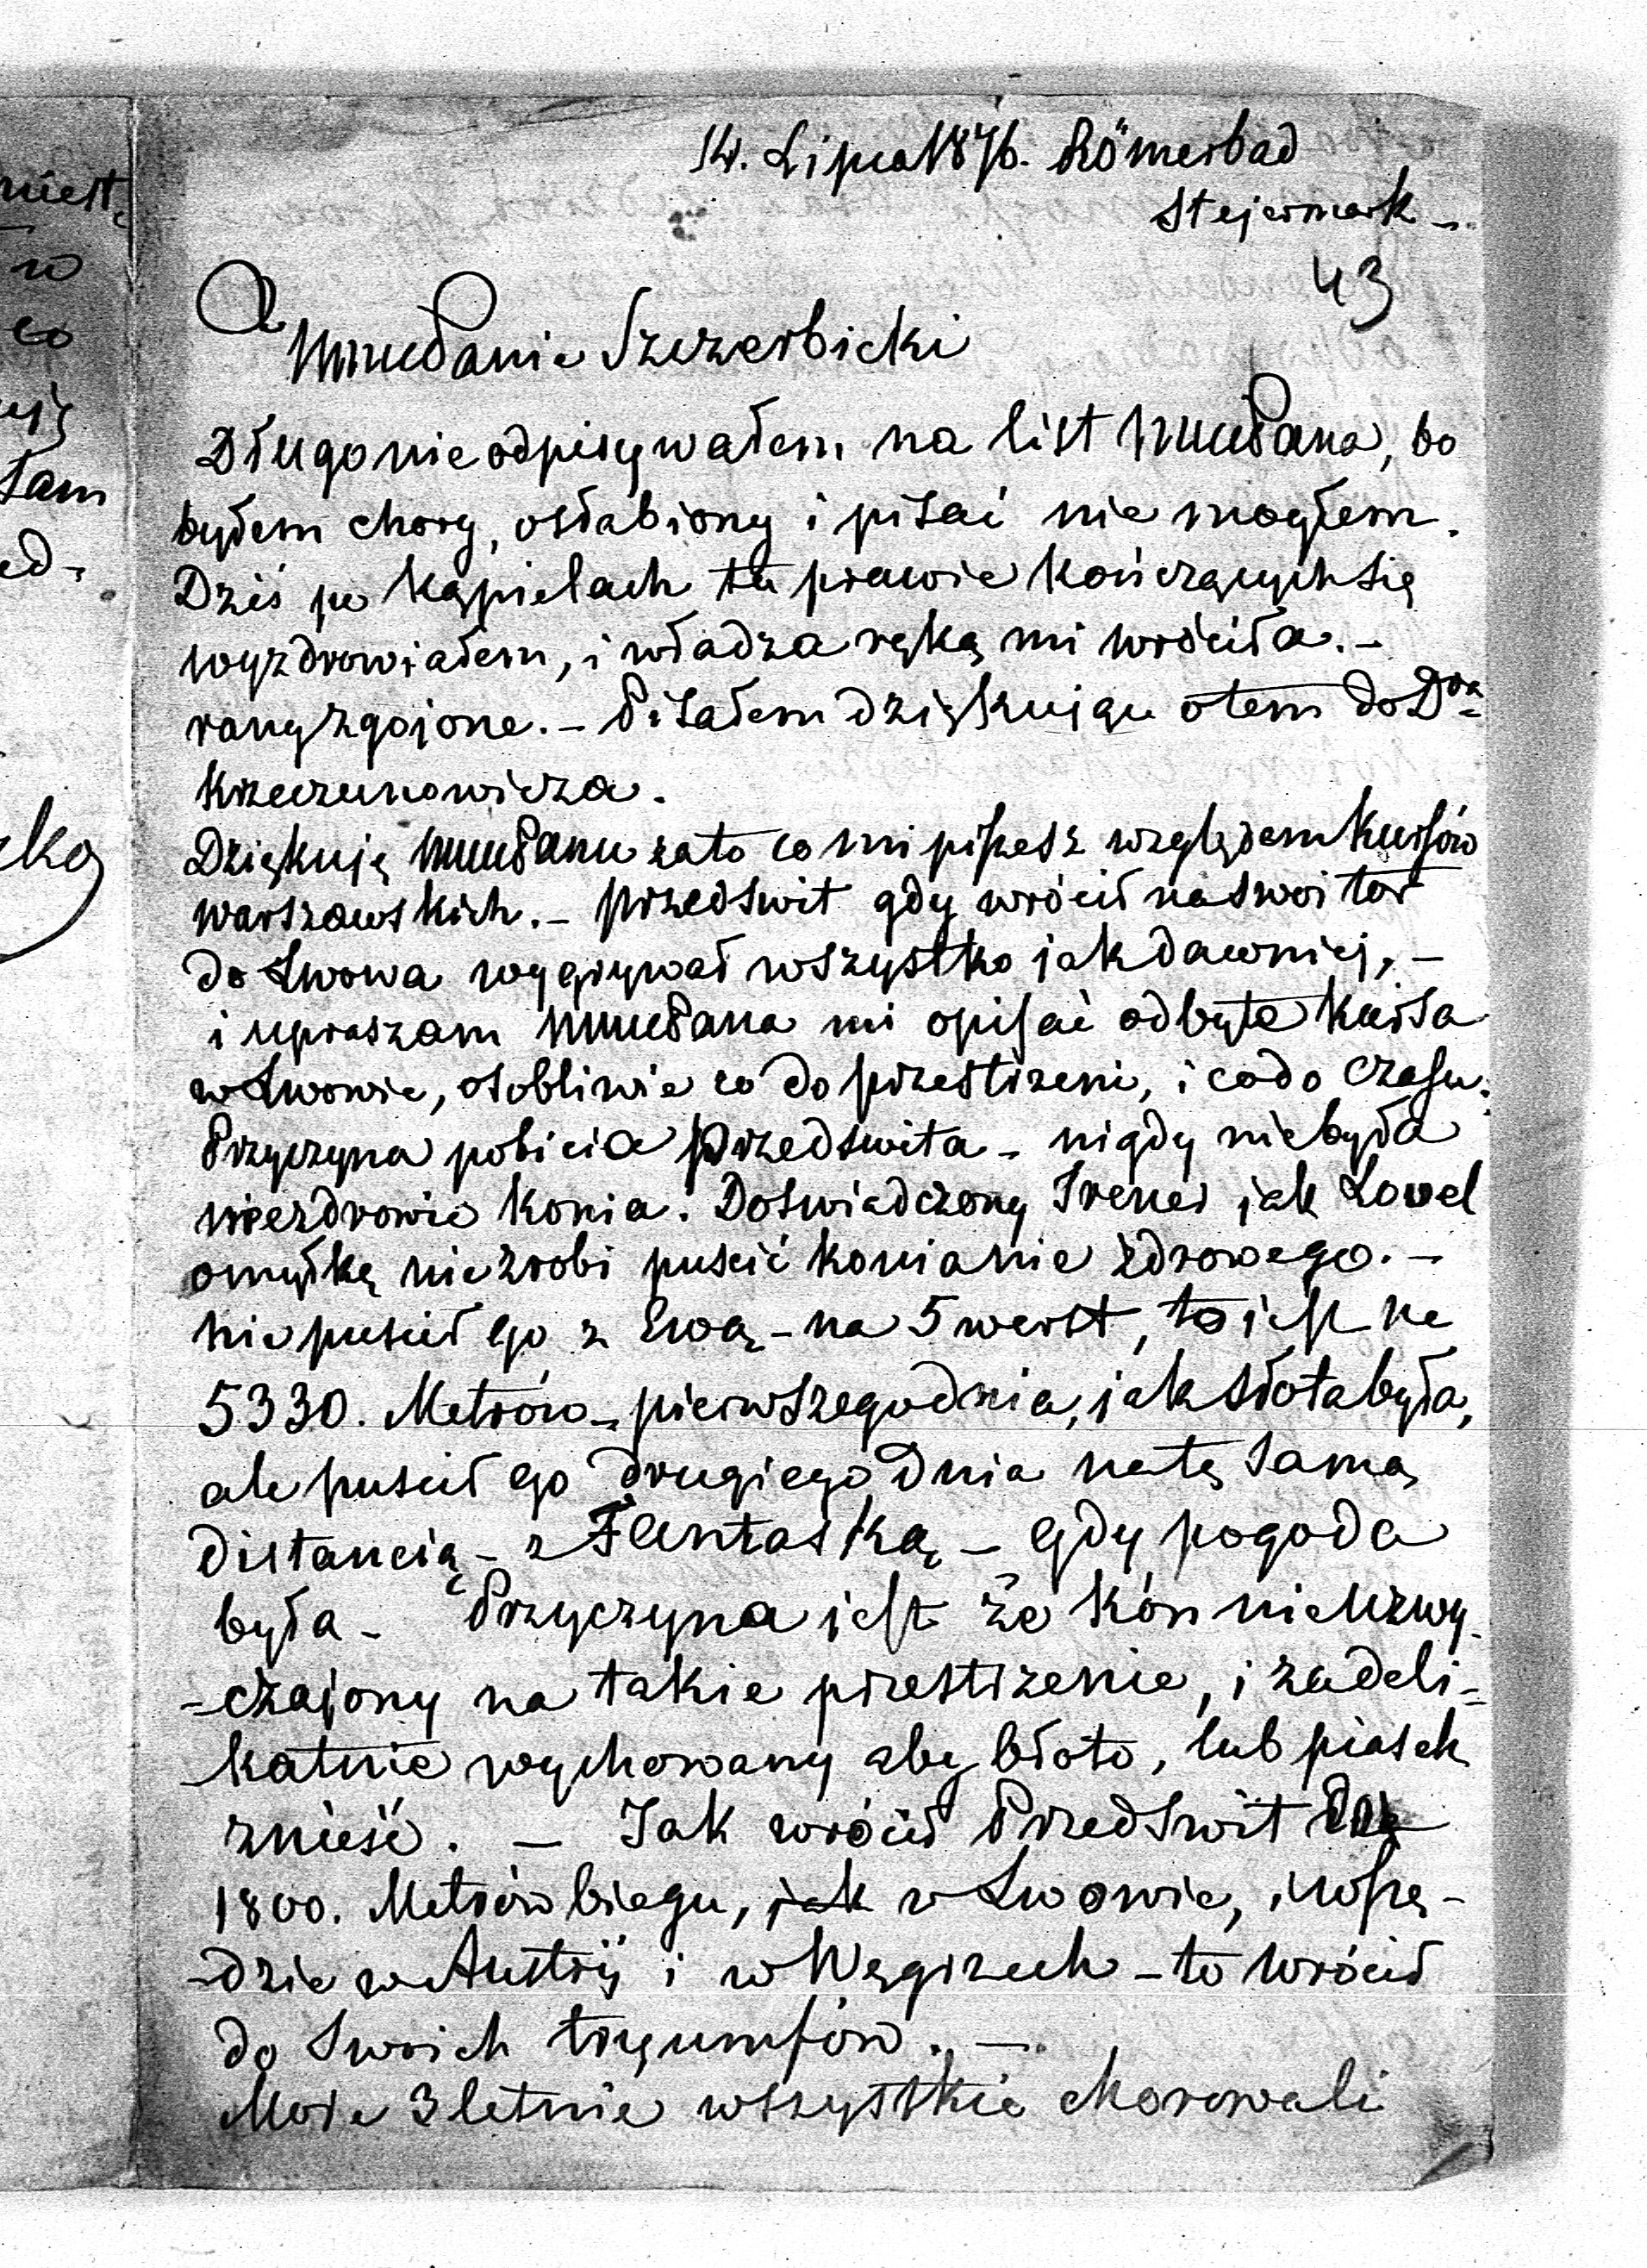 14. Lipca 1876. Römerbad
Stejermark –
43
Panie Szczerbicki
Długo nie odpisywałem na list Pana, bo
byłem chory, osłabiony i pisać nie mogłem.
Dziś po kąpielach tu prawie kończących się
wyzdrowiałem, i władza ręką mi wróciła. –
rany zgojone. – Pisałem dziękując o tem do Dra
Krzeczunowicza.
Dziękuję Panu za to co mi piszesz względem kursów
warszawskich. – Przedswit gdy wrócił na swoi tor
do Lwowa wygrywał wszystko jak dawniej, –
i upraszam Pana mi opisać odbyte kursa
w Lwowie, osobliwie co do przestrzeni, i co do czasu.
Przyczyna pobicia Przedswita – nigdy nie była
niezdrowie konia. Doswiadczony Trener jak Lovel
omyłkę nie zrobi puscić konia nie zdrowego. –
nie puscił go z Ewą – na 5 werst, to jest na
5330. Metrów – pierwszego dnia, jak słota była,
ale puscił go drugiego dnia na tę samą
distancią – z Fantaską – gdy pogoda
była – Przyczyna jest że kón nie uzwy-
-czajony na takie przestrzenie, i za deli-
-katnie wychowany aby błoto, lub piasek
znieść. – Jak wrócił Przedswit do
1800. Metrów biegu, jak w Lwowie, i wszę-
-dzie w Austrÿ i w Węgrzech – to wrócił
do swoich tryumfów. –
Moje 3 letnie wszystkie chorowali
niest.
w
co
tam